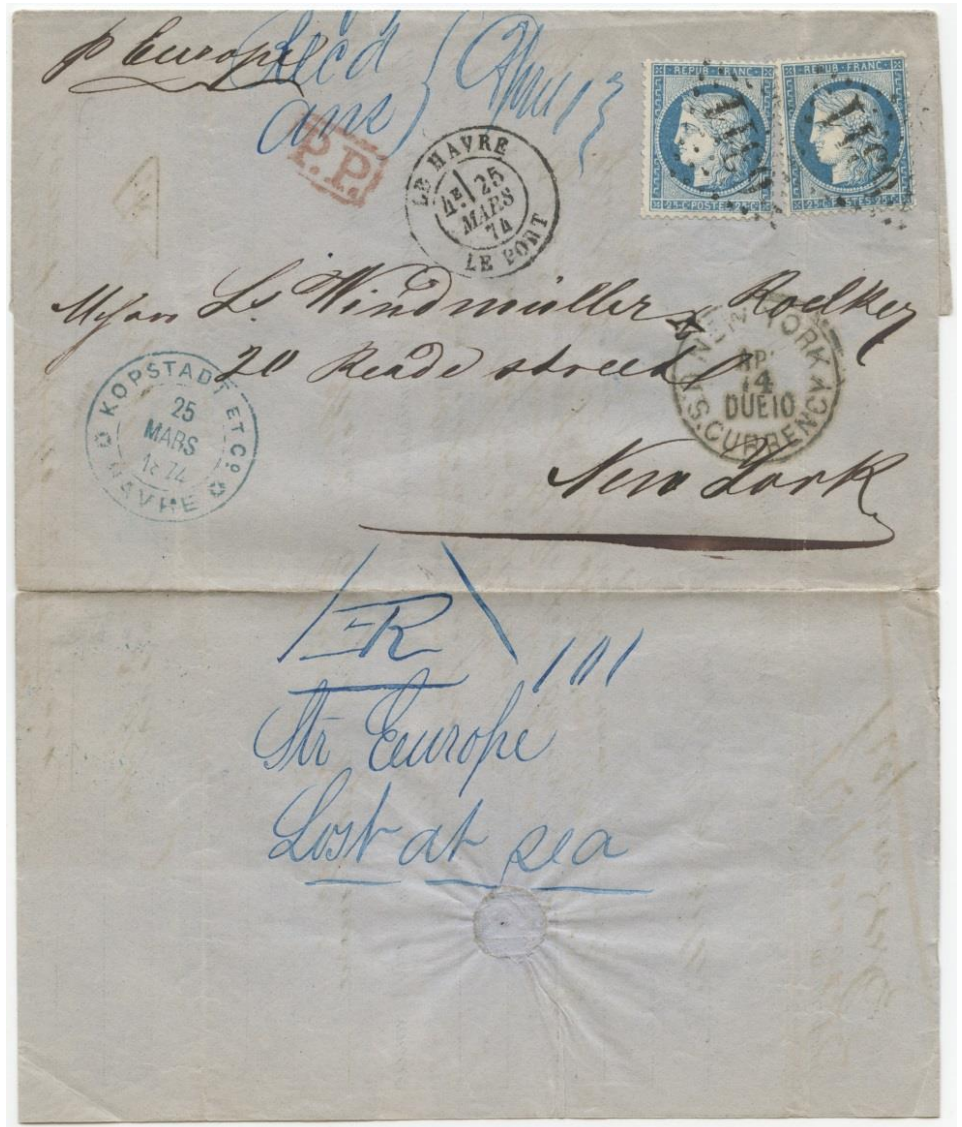 p Europe
Recd
ans
P.P.
LE HAVRE
4E 25
MARS
74
LE PORT
RÉPUB · FRANC ·
25 · C · POSTES · 25 · C
REPUB · FRANC ·
25 · C · POSTES · 25 · C
Ls Windmüller & Roelker
20 Reade street
New York
NEW YORK
AP
14
DUE 10
U.S. CURRENCY
KOPSTADT ET Co.
25
MARS
1874
HAVRE
ER
101
Str Europe
Lost at sea